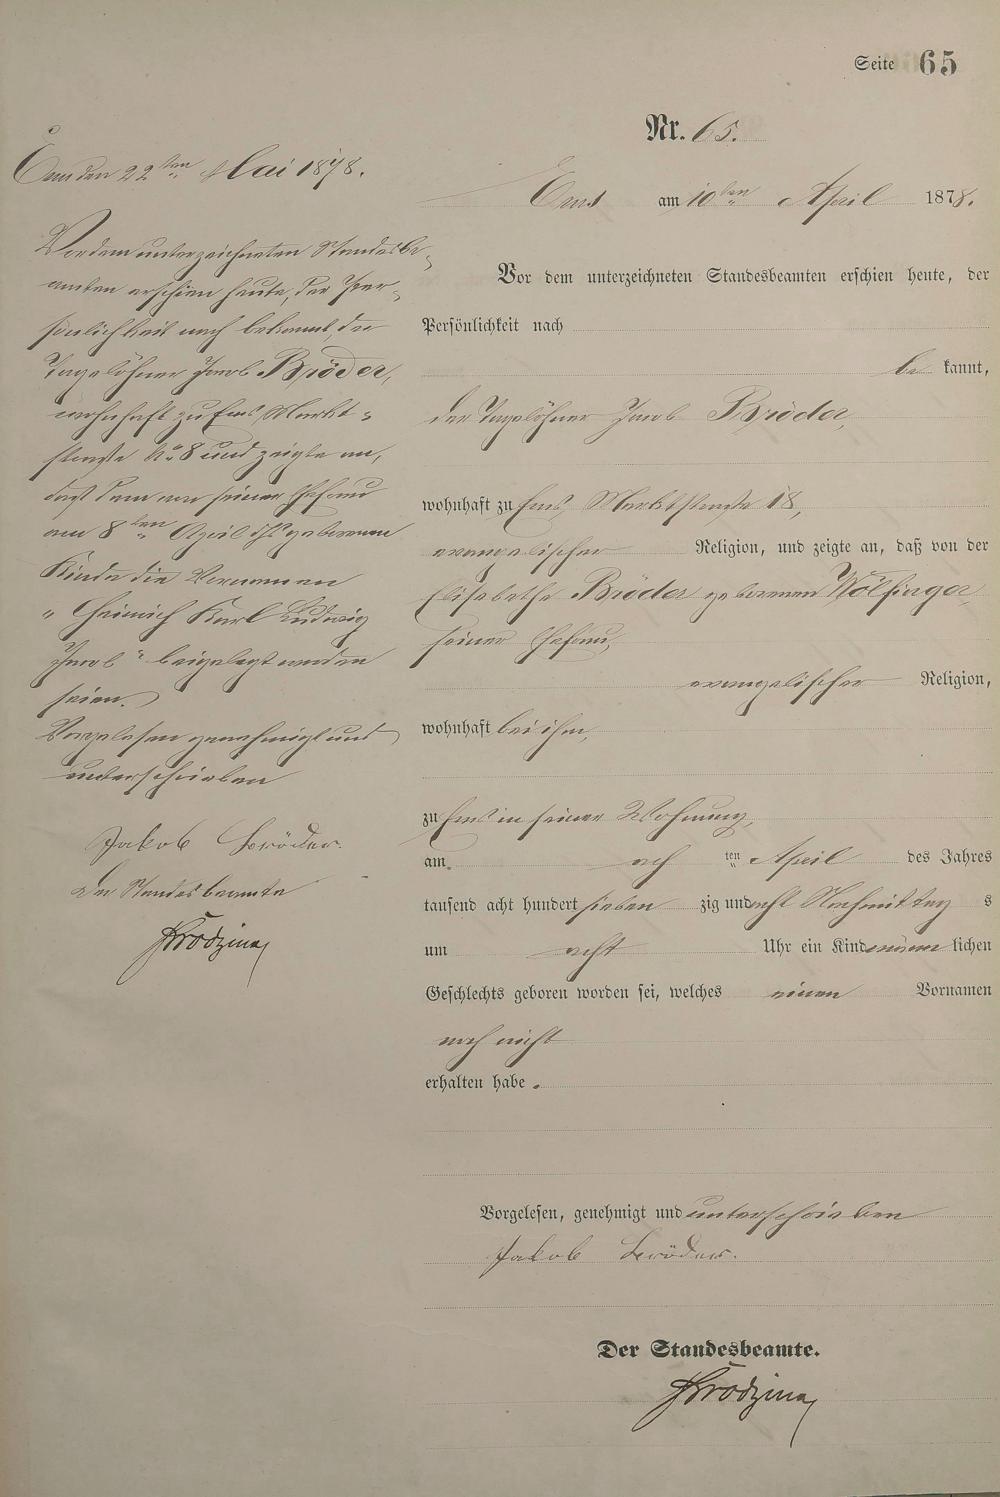 Seite 65
Nr. 65.
Ems am 10ten April 1878.
Vor dem unterzeichneten Standesbeamten erschien heute, der
Persönlichkeit nach
be kannt,
der Tagelöhner Jacob Bröder,
wohnhaft zu Ems, Marktstraße 18,
evangelischer Religion, und zeigte an, daß von der
Elisabethe Bröder geborenen Wölfinger
seiner Ehefrau,
evangelischer Religion,
wohnhaft bei ihm,
zu Ems in seiner Wohnung,
am acht ten April des Jahres
tausend acht hundert sieben zig und acht Nachmittag s
um acht Uhr ein Kind männ lichen
Geschlechts geboren worden sei, welches einen Vornamen
noch nicht
erhalten habe.
Vorgelesen, genehmigt und unterschrieben
Jakob Bröder.
Der Standesbeamte.
Ems den 22ten Mai 1878.
Vor dem unterzeichneten Standesbe-
amten erschien heute, der Per-
sönlichkeit nach bekannt, der
Tagelöhner Jacob Bröder,
wohnhaft zu Ems Markt-
straße No 8 und zeigte an,
daß dem von seiner Ehefrau
am 8ten April geborenen
Kinde die Vornamen
"Heinrich Karl Ludwig
Jacob" beigelegt worden
seien.
Vorgelesen genehmigt und
unterschrieben
Jakob Bröder.
Der Standesbeamte